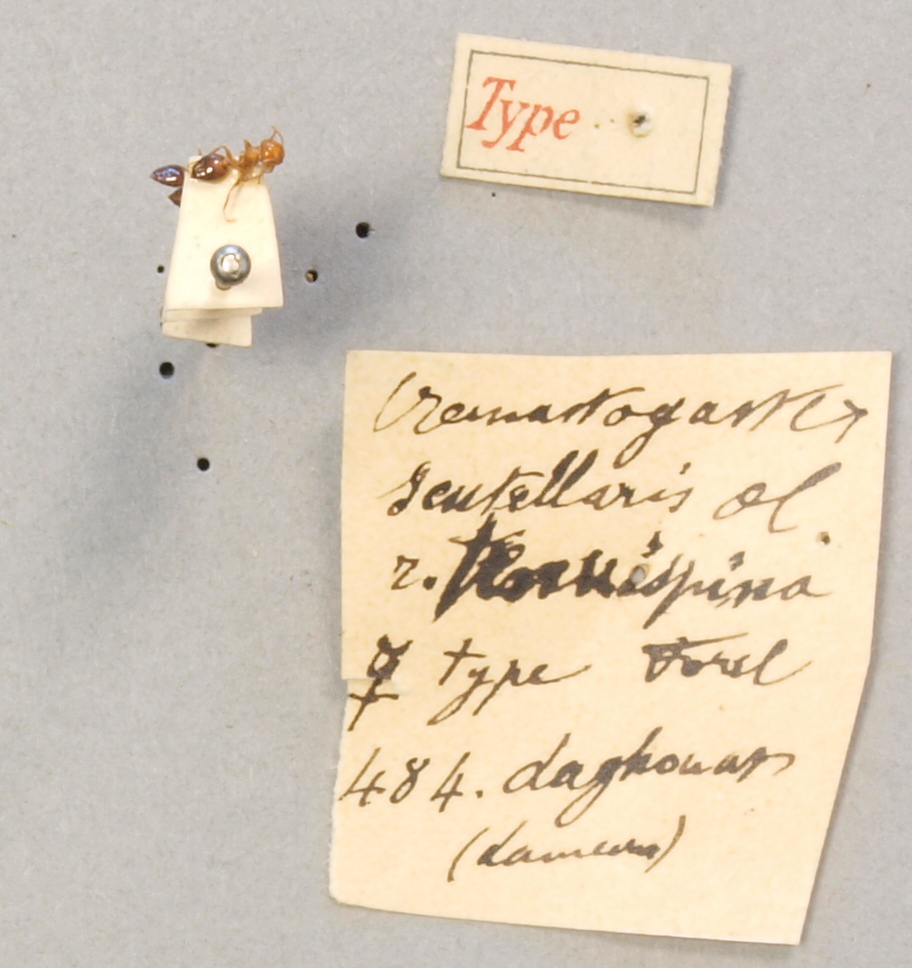 Type
Cremastogaster
scutellaris ol
r. tenuispina
☿ type Forel
484. Laghouat
(Lameere)